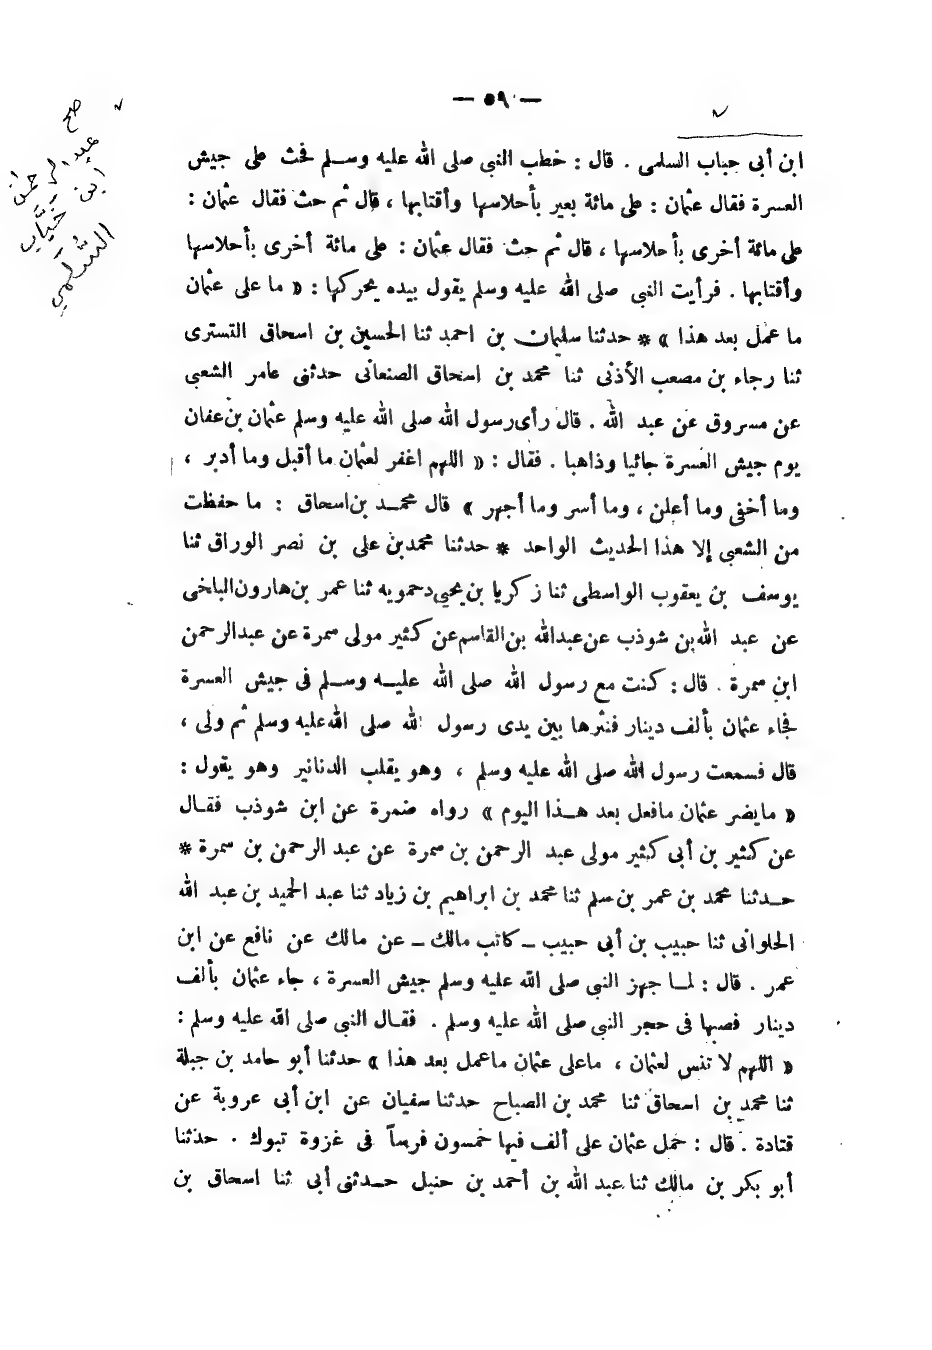 — ٥٩ —
ابن أبى حباب السلمى . قال : خطب النبى صلى الله عليه وسلم فحث على جيش
العسرة فقال عثمان : على مائة بعير بأحلاسها وأقتابها ، قال ثم حث فقال عثمان :
على مائة أخرى بأحلاسها ، قال ثم حث فقال عثمان : على مائة أخرى بأحلاسها
وأقتابها . فرأيت النبى صلى الله عليه وسلم يقول بيده يحركها : « ما على عثمان
ما عمل بعد هذا » * حدثنا سليمان بن احمد ثنا الحسين بن اسحاق التسترى
ثنا رجاء بن مصعب الأذنى ثنا محمد بن اسحاق الصنعانى حدثنى عامر الشعبى
عن مسروق عن عبد الله . قال رأى رسول الله صلى الله عليه وسلم عثمان بن عفان
يوم جيش العسرة جائيا وذاهبا . فقال : « اللهم اغفر لعثمان ما أقبل وما أدبر ،
وما أخفى وما أعلن ، وما أسر وما أجهر » قال محمد بن اسحاق : ما حفظت
من الشعبى إلا هذا الحديث الواحد * حدثنا محمد بن على بن نصر الوراق ثنا
يوسف بن يعقوب الواسطى ثنا زكريا بن يحيى دحمويه ثنا عمر بن هارون البلخى
عن عبد الله بن شوذب عن عبد الله بن القاسم عن كثير مولى سمرة عن عبد الرحمن
ابن سمرة . قال : كنت مع رسول الله صلى الله عليه وسلم فى جيش العسرة
فجاء عثمان بألف دينار فنثرها بين يدى رسول الله صلى الله عليه وسلم ثم ولى ،
قال فسمعت رسول الله صلى الله عليه وسلم ، وهو يقلب الدنانير وهو يقول :
« مايضر عثمان مافعل بعد هذا اليوم » رواه ضمرة عن ابن شوذب فقال
عن كثير بن أبى كثير مولى عبد الرحمن بن سمرة عن عبد الرحمن بن سمرة *
حدثنا محمد بن عمر بن سلم ثنا محمد بن ابراهيم بن زياد ثنا عبد الحميد بن عبد الله
الحلوانى ثنا حبيب بن أبى حبيب – كاتب مالك – عن مالك عن نافع عن ابن
عمر . قال : لما جهز النبى صلى الله عليه وسلم جيش العسرة ، جاء عثمان بألف
دينار فصبها فى حجر النبى صلى الله عليه وسلم . فقال النبى صلى الله عليه وسلم :
« اللهم لا تنس لعثمان ، ماعلى عثمان ماعمل بعد هذا » حدثنا أبو حامد بن جبلة
ثنا محمد بن اسحاق ثنا محمد بن الصباح حدثنا سفيان عن ابن أبى عروبة عن
قتادة . قال : حمل عثمان على ألف فيها خمسون فرساً فى غزوة تبوك . حدثنا
أبو بكر بن مالك ثنا عبد الله بن أحمد بن حنبل حدثنى أبى ثنا اسحاق بن
صح
عبد الرحمن
ابن خبَّاب
السُّلمي